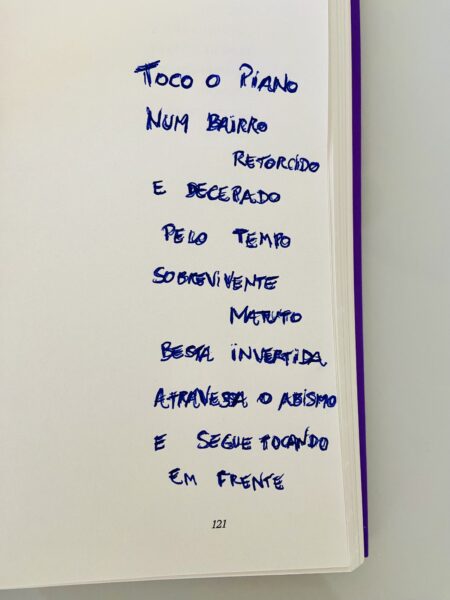 TOCO O PIANO
NUM BAIRRO
RETORCIDO
E DECEPADO
PELO TEMPO
SOBREVIVENTE
MATUTO
BESTA INVERTIDA
ATRAVESSA O ABISMO
E SEGUE TOCANDO
EM FRENTE
121